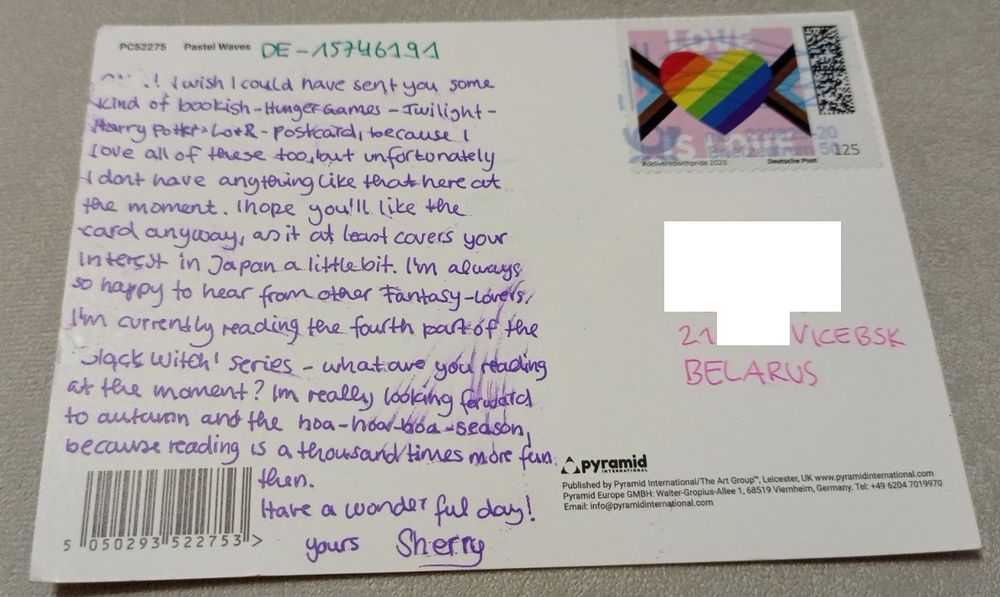 PC52275 Pastel Waves DE-15746191
! I wish I could have sent you some
kind of bookish-Hunger Games - Twilight-
Harry Potter-LotR-postcard, because I
love all of these too, but unfortunately
I dont have anything like that here at
the moment. I hope you'll like the
card anyway, as it at least covers your
interest in Japan a little bit. I'm always
so happy to hear from other Fantasy-Lovers!
I'm currently reading the fourth part of the
'Black Witch' series - what are you reading
at the moment? Im really looking forward
to autumn and the hoa-hoa-hoa-season,
because reading is a thousand times more fun
then.
Have a wonderful day!
yours Sherry
5 050293 522753 >
LOVE
IS LOVE
#deliveredwithpride 2025
Deutsche Post
125
Briefzentrum
21
VICEBSK
BELARUS
pyramid
INTERNATIONAL
Published by Pyramid International/The Art Group™, Leicester, UK www.pyramidinternational.com
Pyramid Europe GMBH: Walter-Gropius-Allee 1, 68519 Viernheim, Germany. Tel: +49 6204 7019970
Email: info@pyramidinternational.com